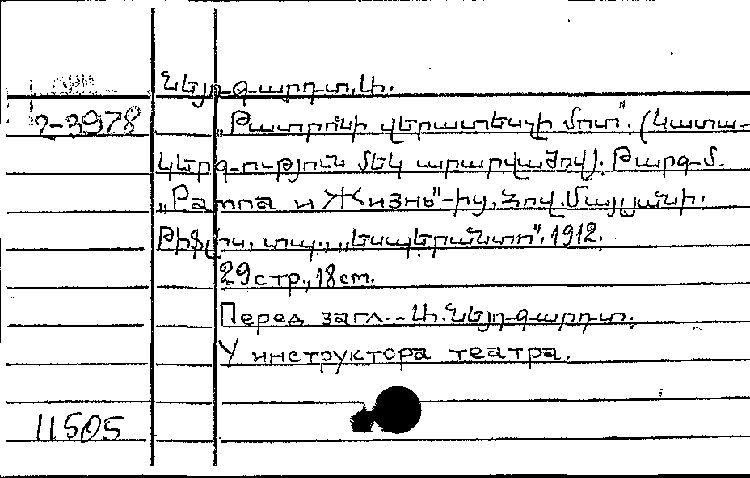 Նեյդգարդտ, Ա.
2-3978 „Թատրոնի վերատեսչի մոտ“. (Կատա-
կերգություն մեկ արարվածով). Թարգմ.
„Рампа и Жизнь“-ից, Հով. Մայլյանի.
Թիֆլիս, տպ., „Էսպերանտո“. 1912.
29стр., 18см.
Перед загл.-Ա. Նեյդգարդտ.
У инструктора театра.
11505